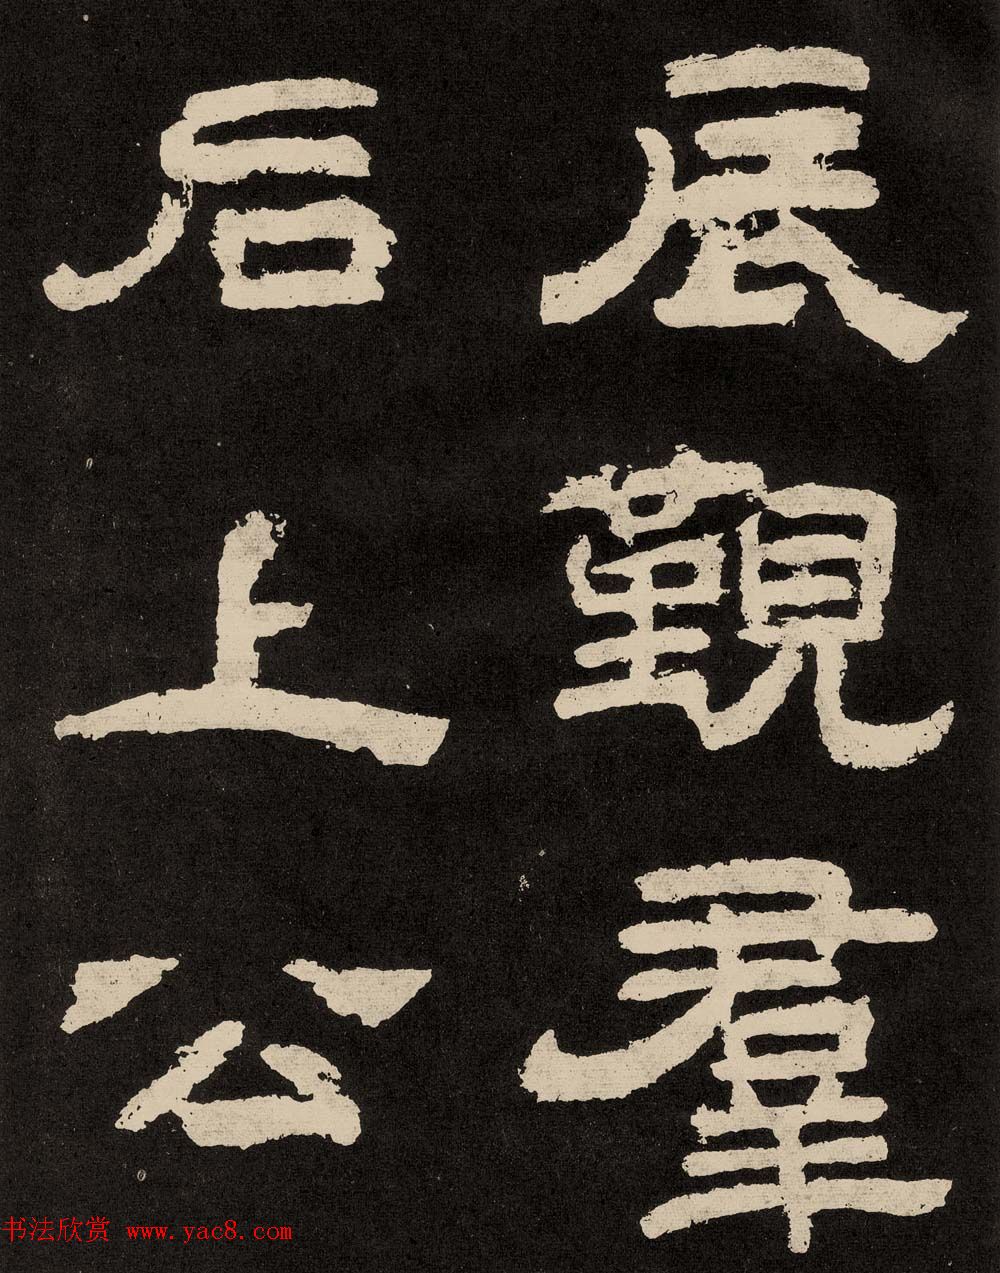 辰覲羣
后上公
书法欣赏 www.yac8.com